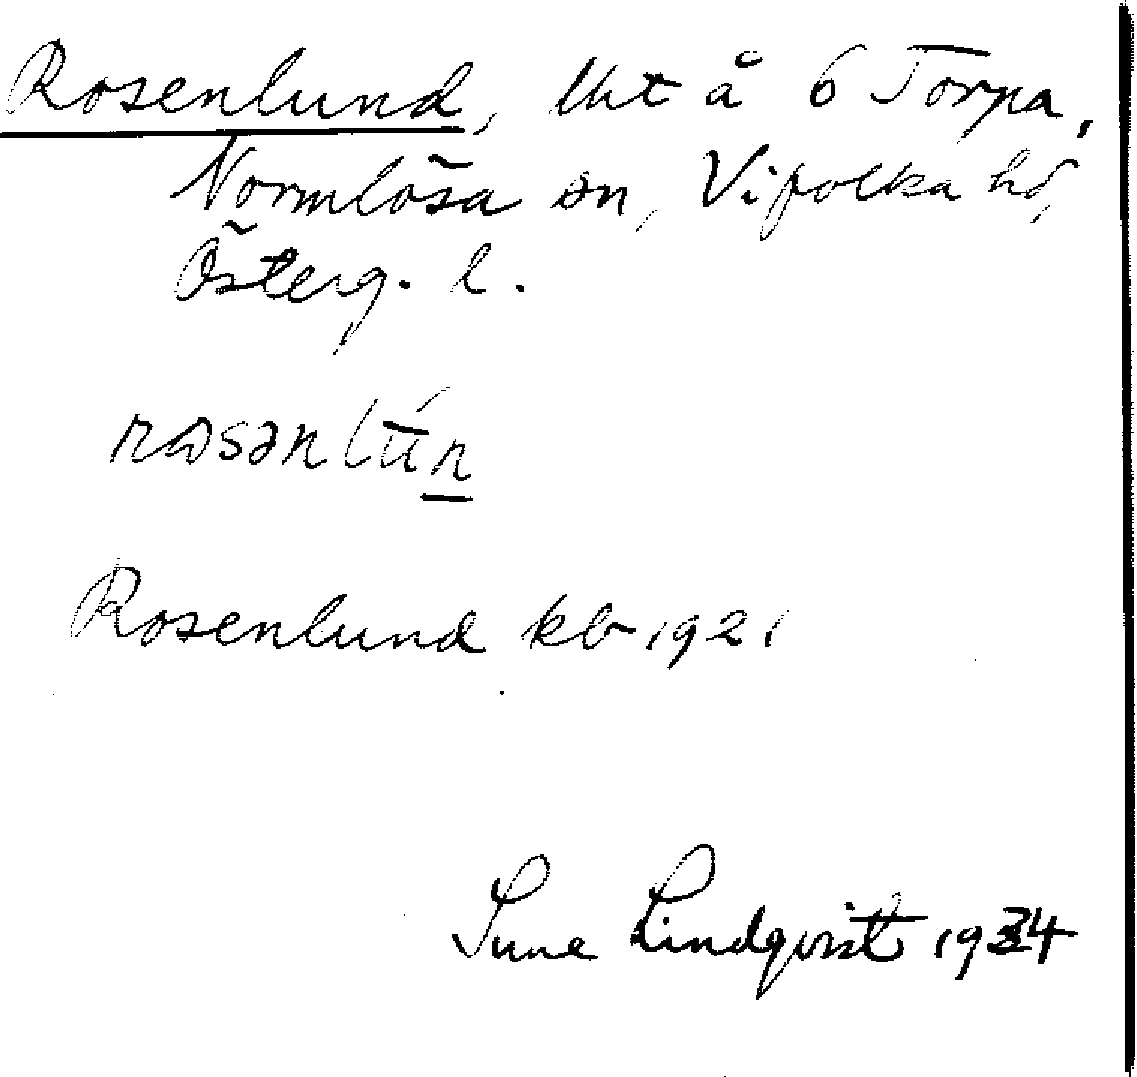 Rosenlund, lht å 6 Torpa,
Normlösa sn, Vifolka hd,
Österg. l.
rɷsənlú̄n̲
Rosenlund kb 1921
Sune Lindqvist 1934